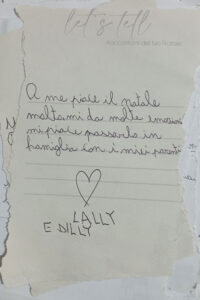 let's tell
Raccontami del tuo Natale
A me piace il natale
molto, mi da molte emozioni
mi piace passarlo in
famiglia con i miei parenti
LALLY
E DILLY